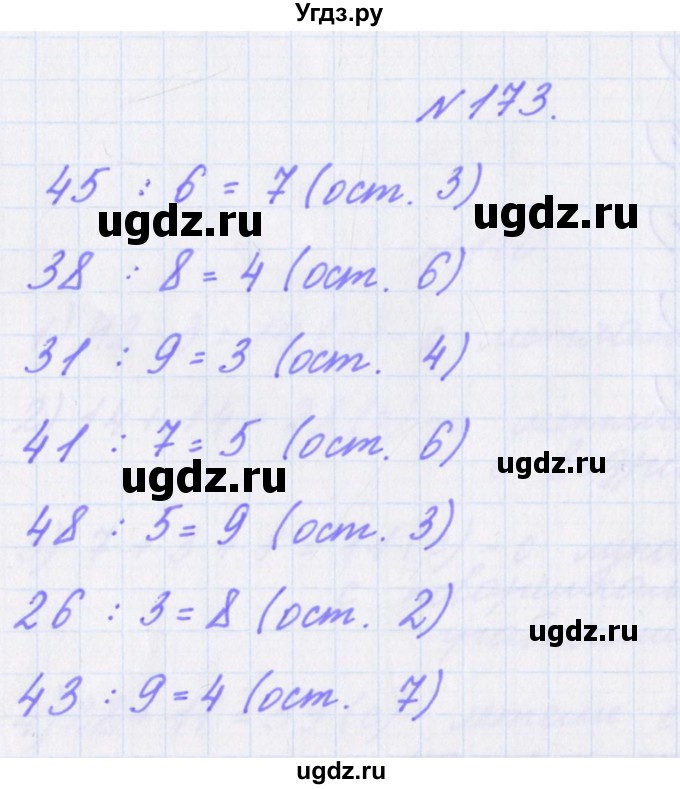 Угдз.ру
N 173.
45 : 6 = 7 (ост. 3)
ugdz.ru
ugdz.ru
38 : 8 = 4 (ост. 6)
31 : 9 = 3 (ост. 4)
41 : 7 = 5 (ост. 6)
ugdz.ru
ugdz.ru
48 : 5 = 9 (ост. 3)
26 : 3 = 8 (ост. 2)
ugdz.ru
43 : 9 = 4 (ост. 7)
ugdz.ru